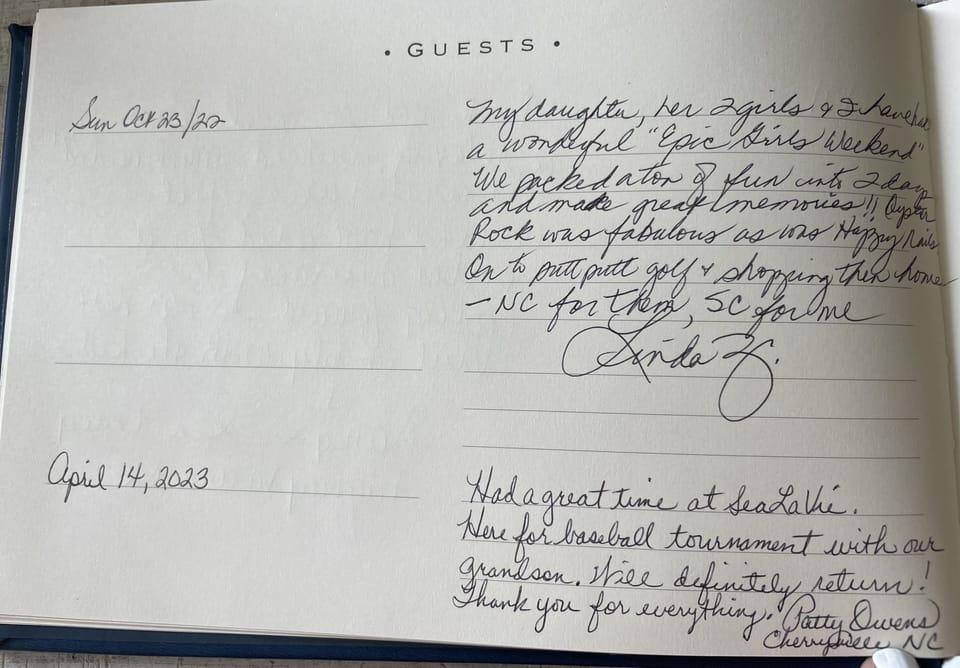 • GUESTS •
Sun Oct 23/22
My daughter, her 2 girls & I have had
a wonderful "Epic Girls Weekend"
We packed a ton of fun into 2 days
and made great memories!! Oyster
Rock was fabulous as was Happy Nails
On to putt putt golf & shopping then home
– NC for them, SC for me
Linda Z.
April 14, 2023
Had a great time at Sea La Vie.
Here for baseball tournament with our
grandson. Will definitely return!
Thank you for everything. Patty Owens
Cherryville, NC